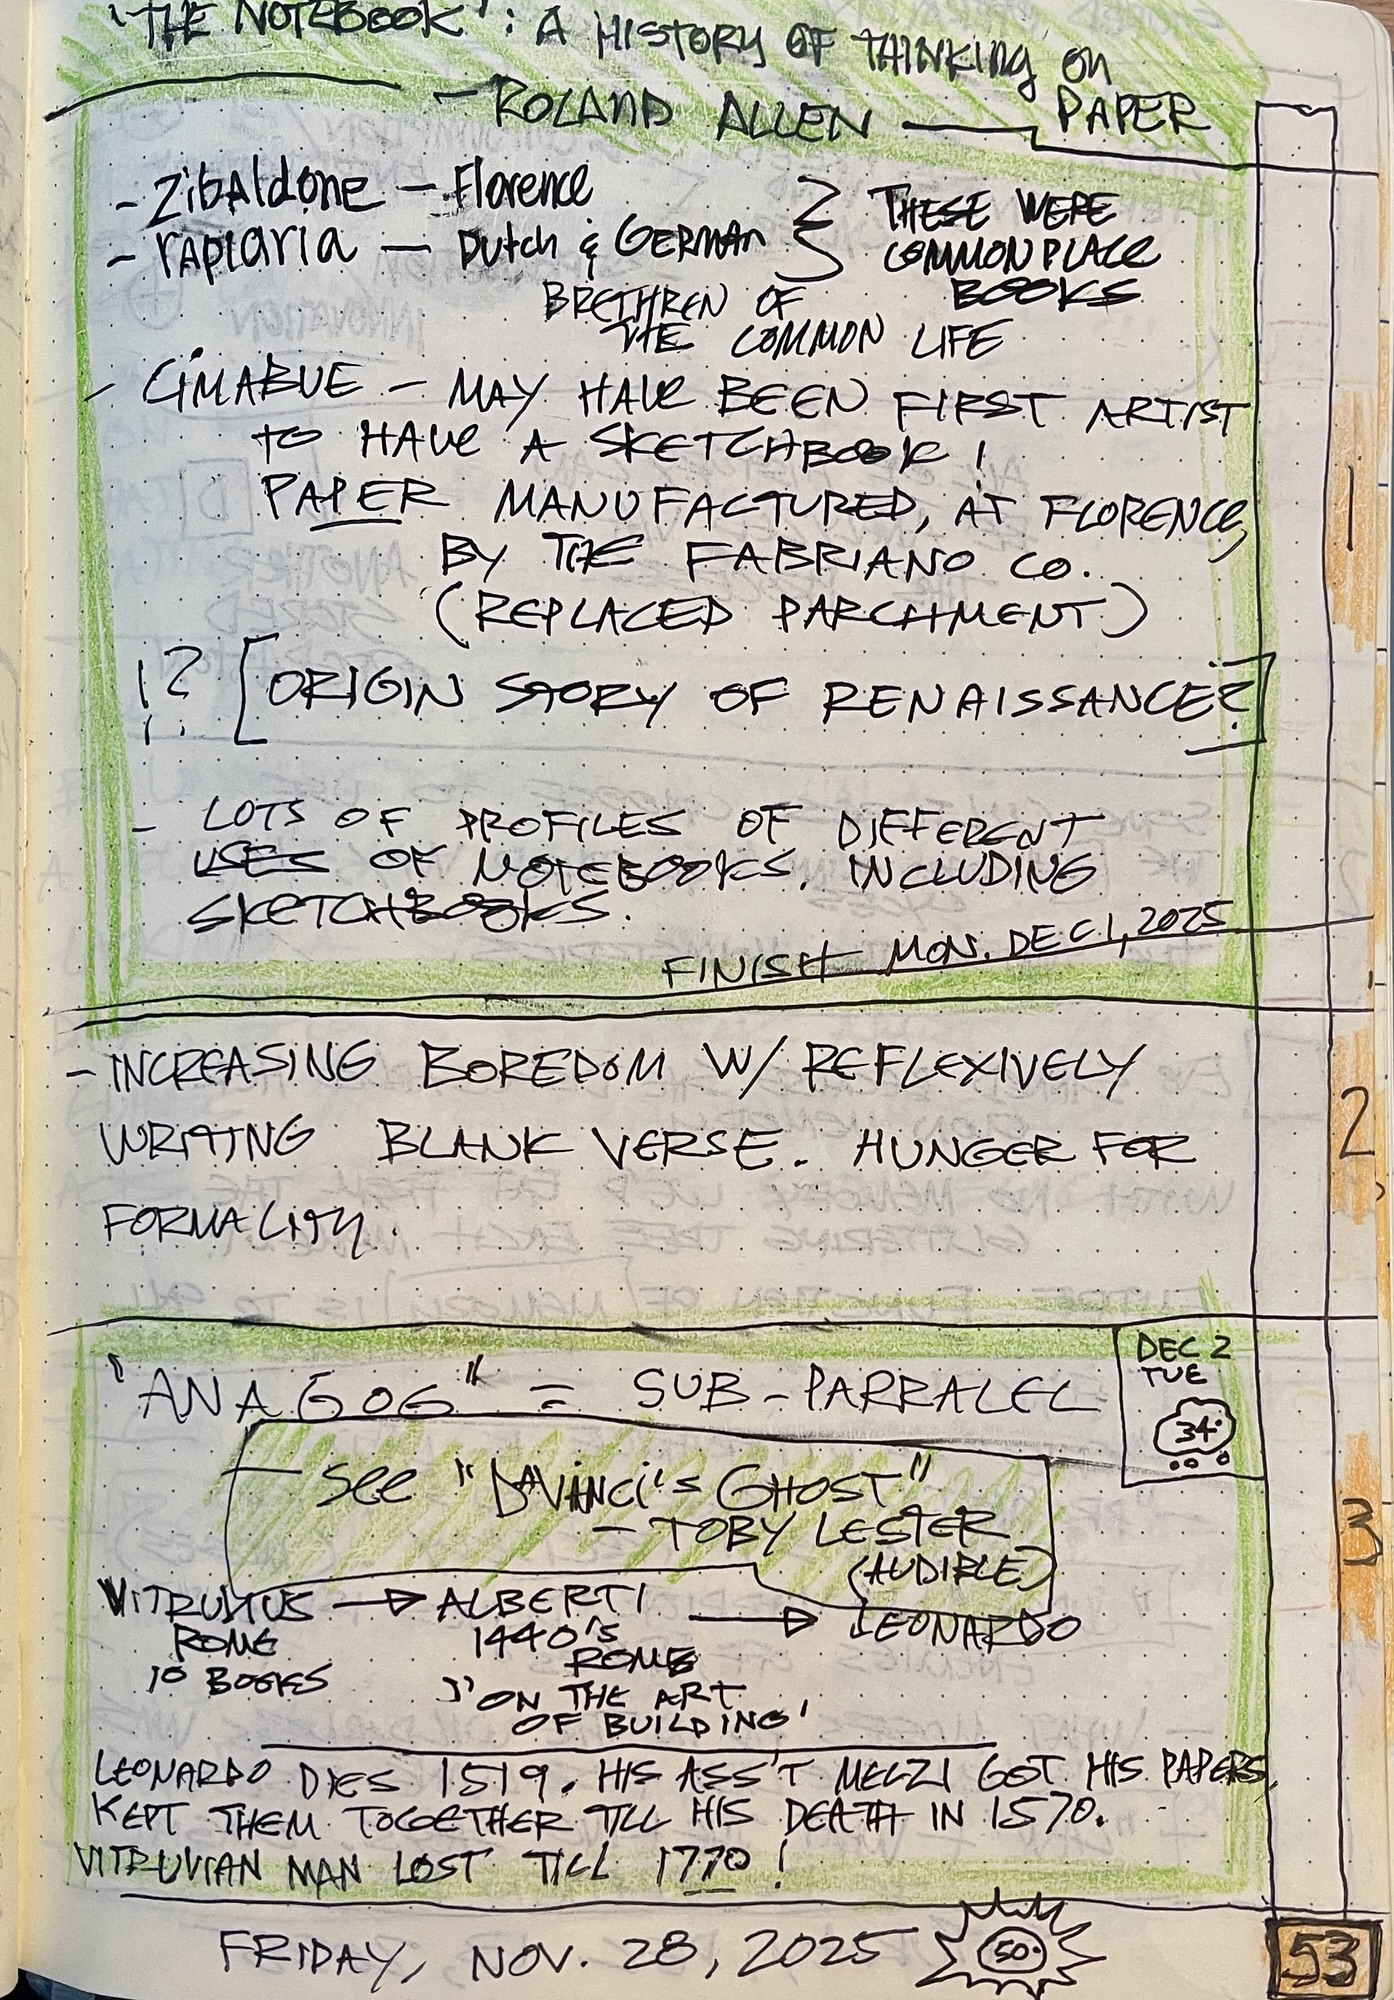 'THE NOTEBOOK': A HISTORY OF THINKING ON PAPER
- ROLAND ALLEN
- Zibaldone - Florence
- rapiaria - Dutch & GERMAN
BRETHREN OF
THE COMMON LIFE
THESE WERE
COMMONPLACE
BOOKS
- CIMABUE - MAY HAVE BEEN FIRST ARTIST
TO HAVE A SKETCHBOOK!
PAPER MANUFACTURED, AT FLORENCE,
BY THE FABRIANO CO.
(REPLACED PARCHMENT)
!? [ORIGIN STORY OF RENAISSANCE?]
1
- LOTS OF PROFILES OF DIFFERENT
USES OF NOTEBOOKS. INCLUDING
SKETCHBOOKS.
FINISH MON. DEC 1, 2025
- INCREASING BOREDOM W/ REFLEXIVELY
WRITING BLANK VERSE. HUNGER FOR
FORMALITY.
2
"ANAGOG" = SUB-PARRALEL
DEC 2
TUE
34°
- see "DAVINCI'S GHOST"
- TOBY LESTER
(AUDIBLE)
3
VITRUVIUS → ALBERTI → LEONARDO
ROME
10 BOOKS
1440'S
ROME
'ON THE ART
OF BUILDING'
LEONARDO DIES 1519. HIS ASS'T MELZI GOT HIS PAPERS,
KEPT THEM TOGETHER TILL HIS DEATH IN 1570.
VITRUVIAN MAN LOST TILL 1770!
FRIDAY, NOV. 28, 2025
50°
53